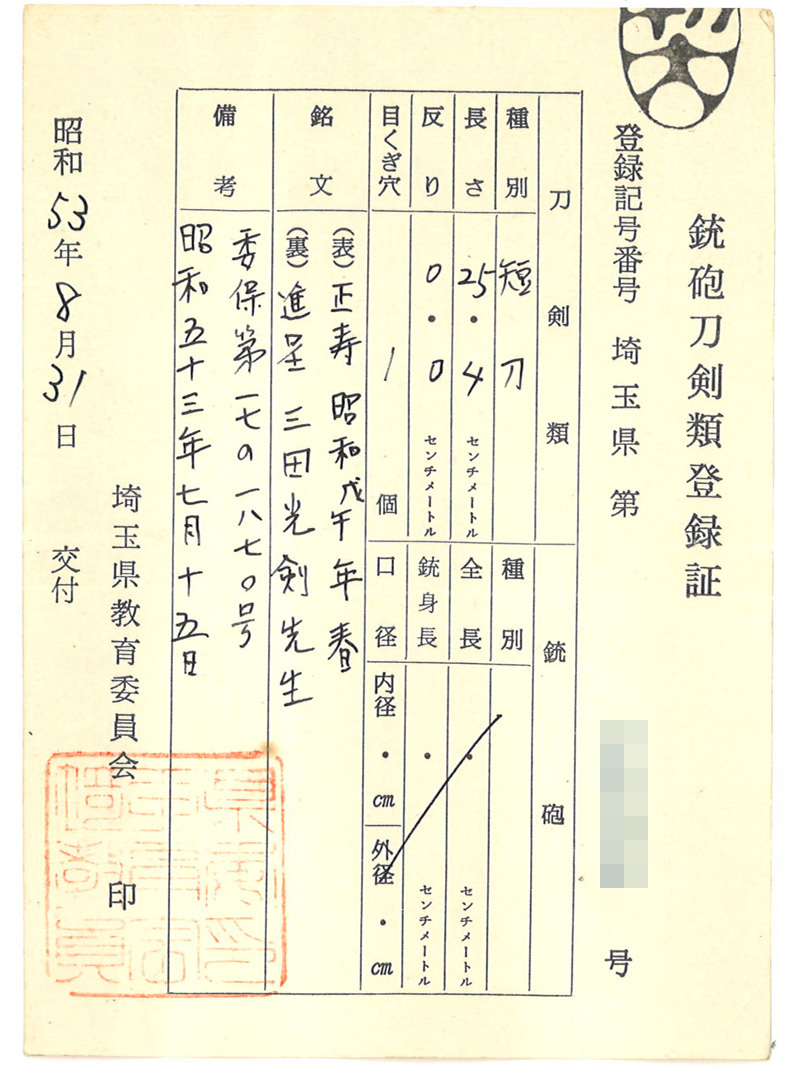 銃砲刀剣類登録証
登録記号番号 埼玉県 第 号
刀剣類
種別 短刀
長さ 25・4 センチメートル
反り 0・0 センチメートル
目くぎ穴 1 個
銘文
(表)正寿 昭和戊午年春
(裏)進呈 三田光剣先生
備考
委保第一七の一八七〇号
昭和五十三年七月十五日
銃砲
種別
全長 ・ センチメートル
銃身長 ・ センチメートル
口径 内径 ・ cm 外径 ・ cm
昭和53年8月31日 交付
埼玉県教育委員会 印